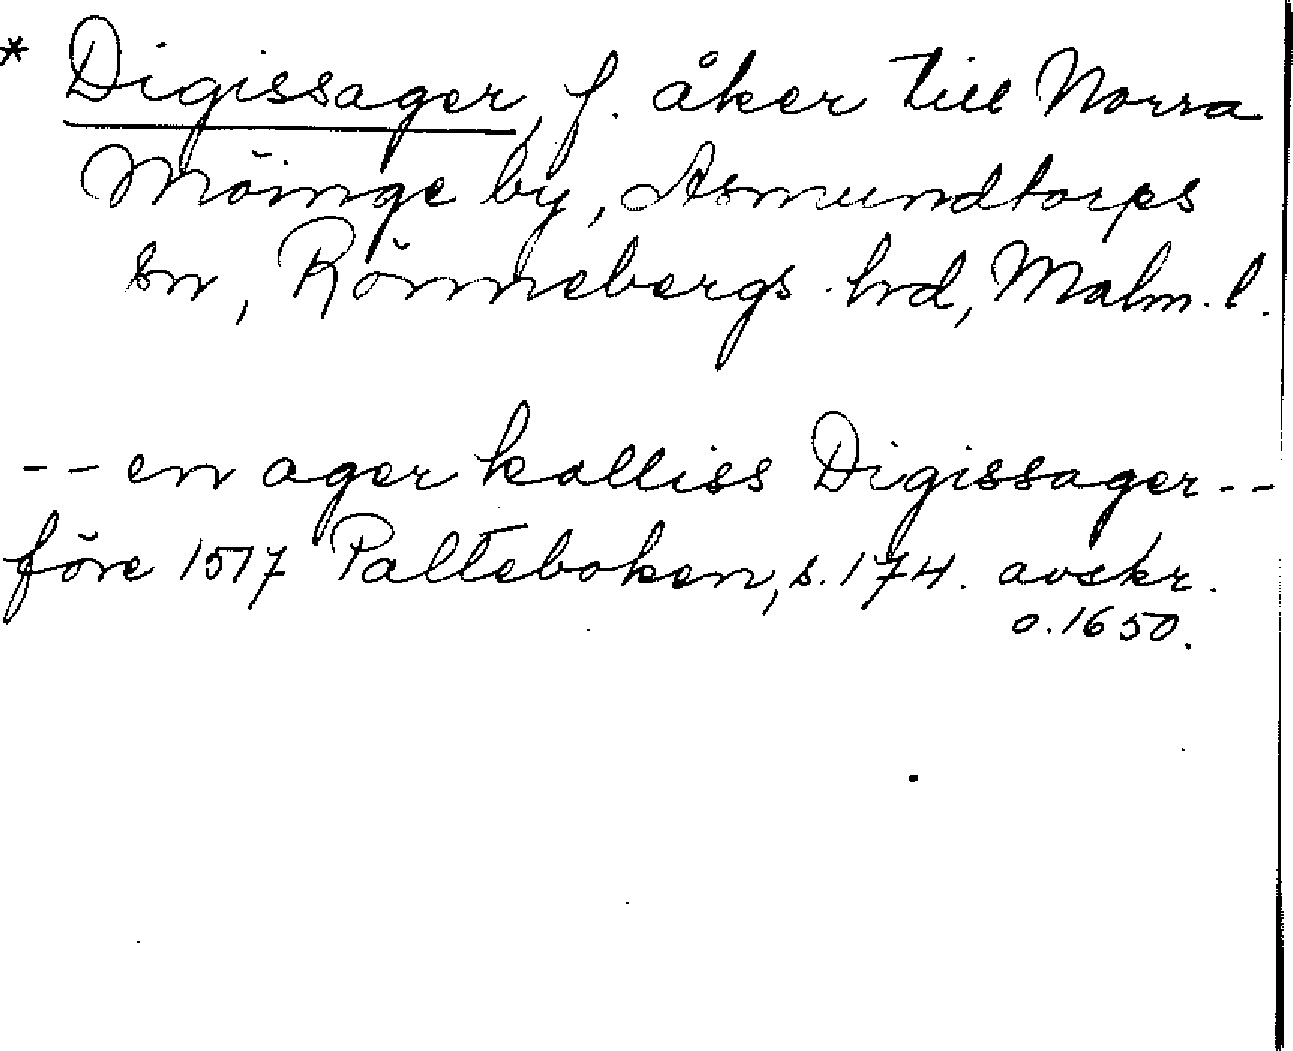 * Digissager, f. åker till Norra
Möinge by, Asmundtorps
sn, Rönnebergs hrd, Malm. l.
-- en ager kalliss Digissager --
före 1517 Palteboken, s. 174. avskr.
o. 1650.